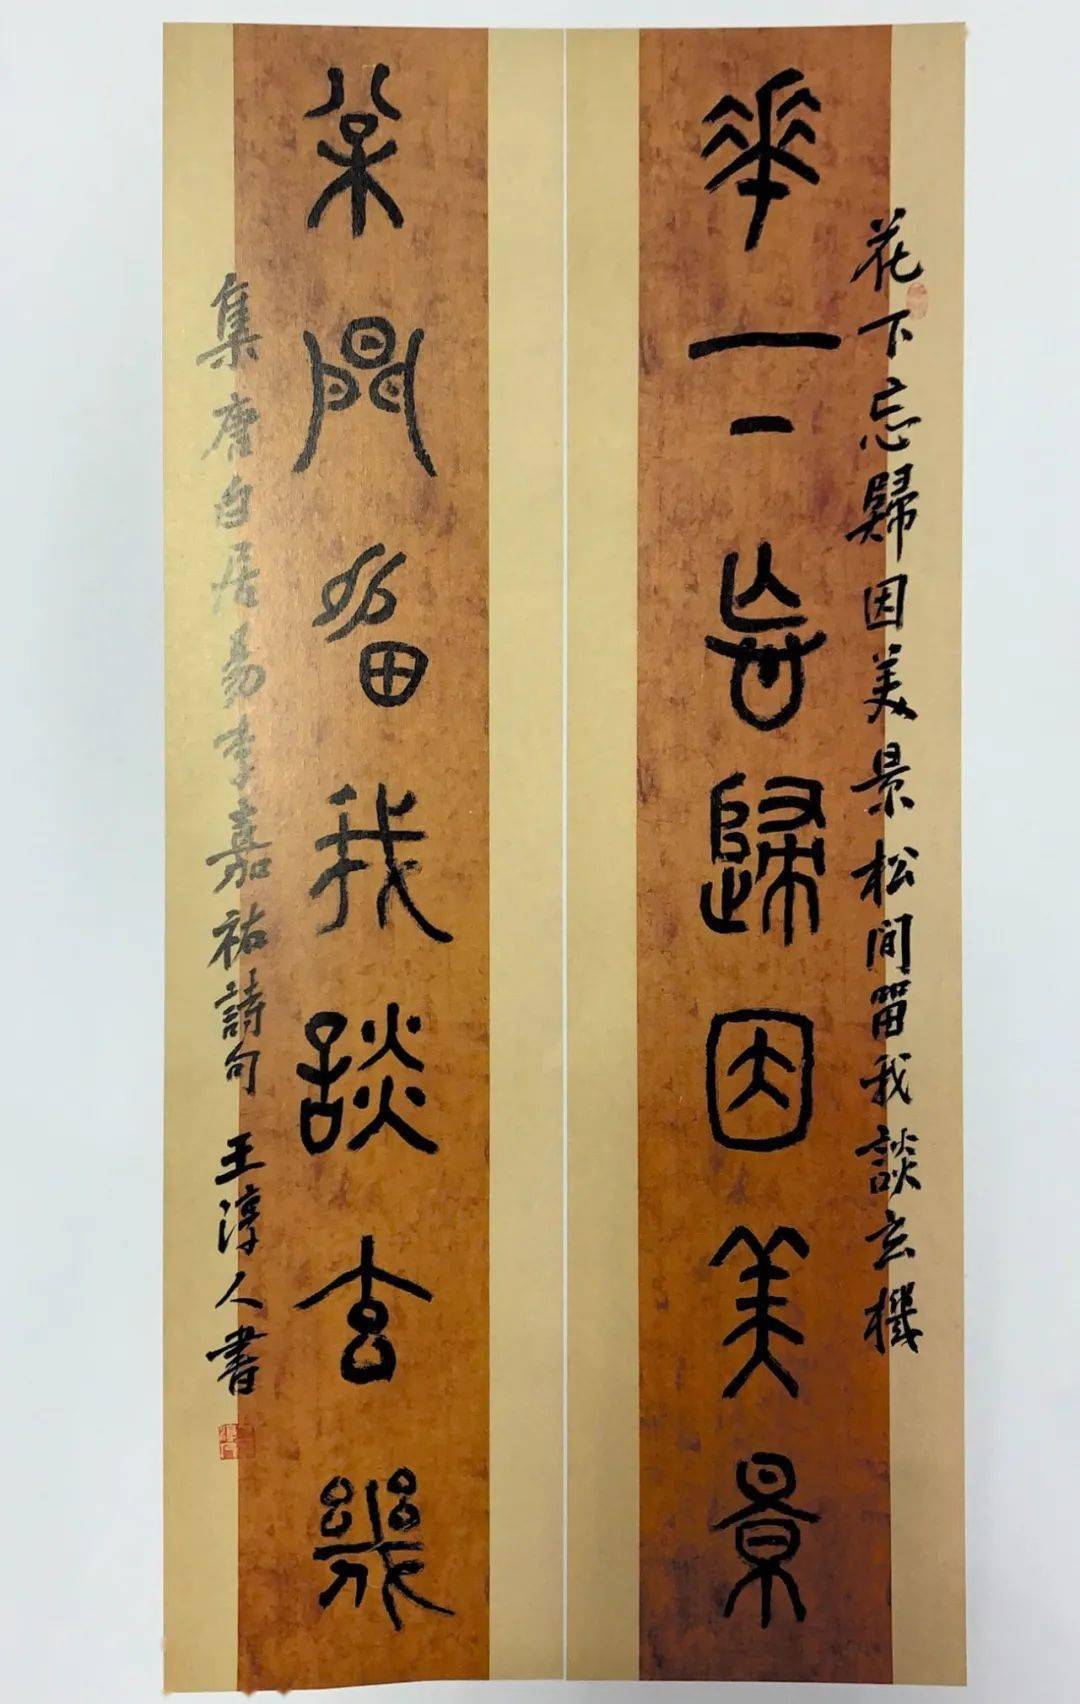 花下忘歸因美景松間留我談玄機
華下忘歸因美景
枩閒留我談玄幾
集唐白居易李嘉祐詩句 王淳人書